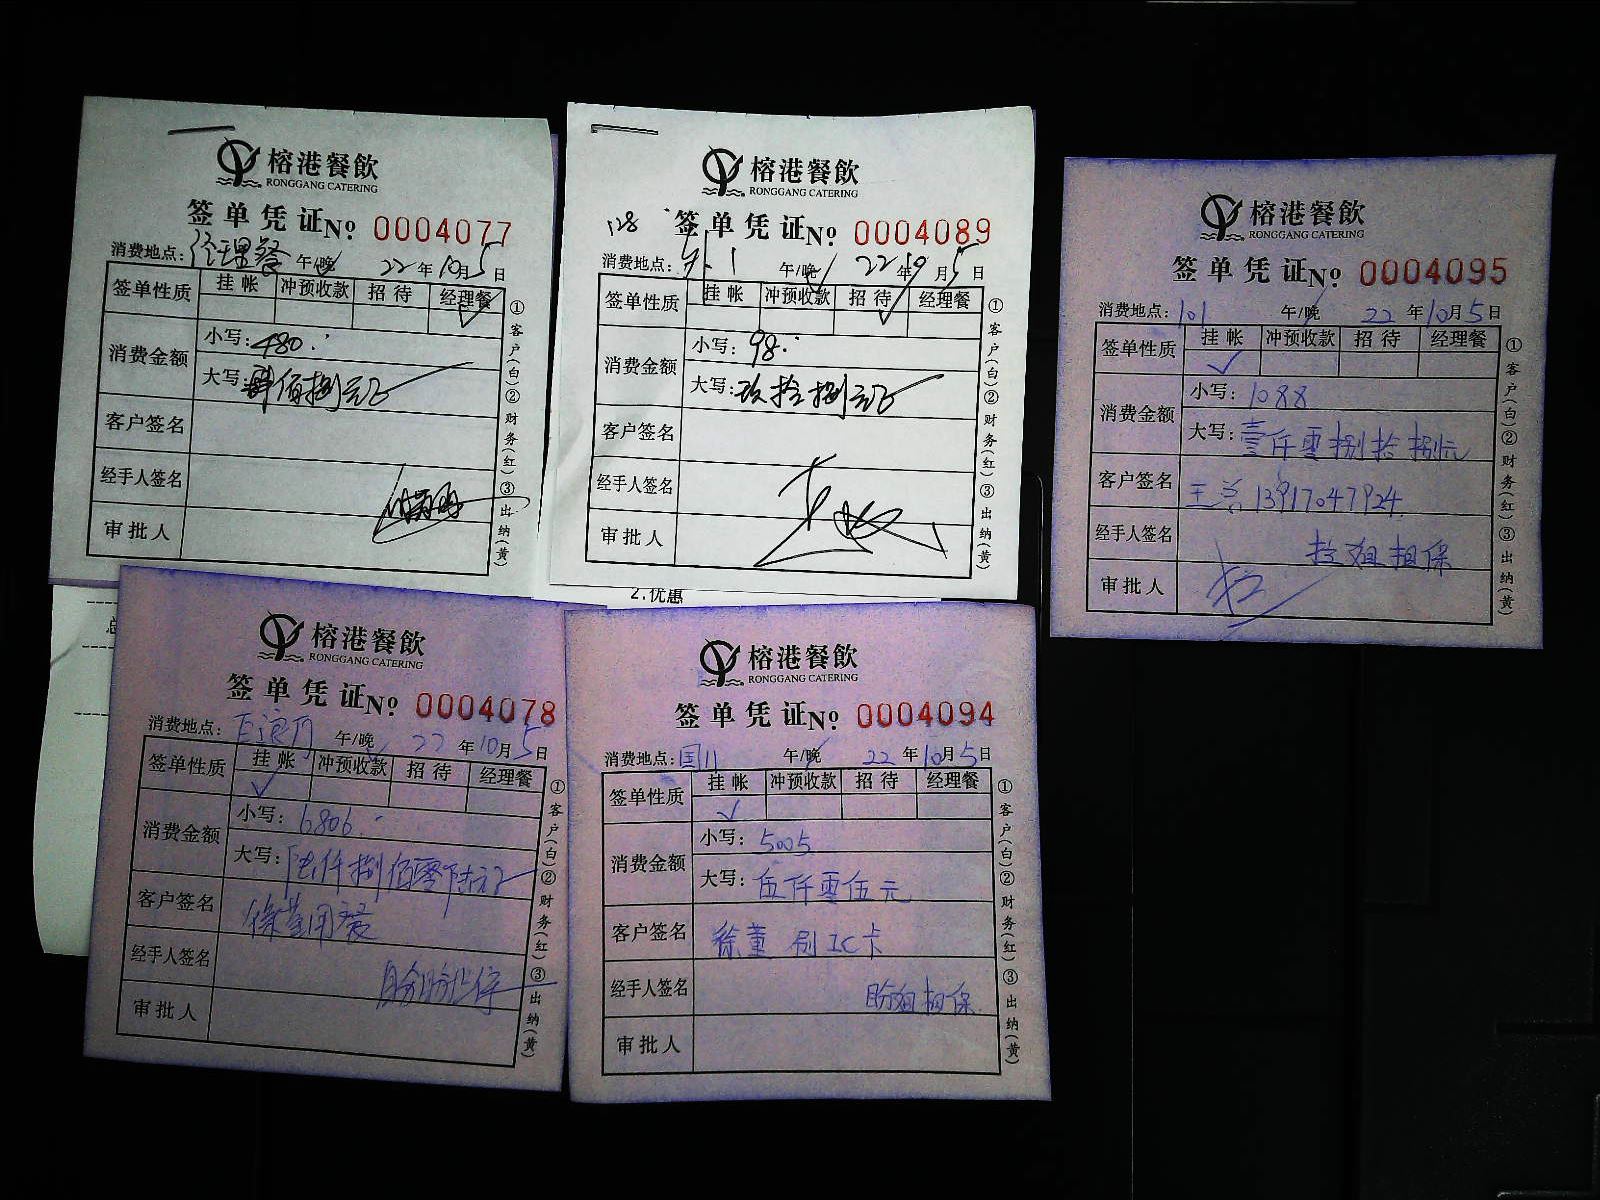 榕港餐飲
RONGGANG CATERING
签单凭证 No 0004077
消费地点：经理餐 午/晚 22年10月5日
签单性质 挂帐 冲预收款 招待 经理餐
消费金额 小写：480.
大写：肆佰捌元正
客户签名
经手人签名
审批人
①客户(白)②财务(红)③出纳(黄)
榕港餐飲
RONGGANG CATERING
128 签单凭证 No 0004089
消费地点： 午/晚 22年10月5日
签单性质 挂帐 冲预收款 招待 经理餐
消费金额 小写：98.
大写：玖拾捌元正
客户签名
经手人签名
审批人
①客户(白)②财务(红)③出纳(黄)
2.优惠
榕港餐飲
RONGGANG CATERING
签单凭证 No 0004095
消费地点：101 午/晚 22年10月5日
签单性质 挂帐 冲预收款 招待 经理餐
消费金额 小写：1088
大写：壹仟零捌拾捌元
客户签名 王总 13917047924
经手人签名 姐担保
审批人
①客户(白)②财务(红)③出纳(黄)
总
榕港餐飲
RONGGANG CATERING
签单凭证 No 0004078
消费地点： 午/晚 22年10月5日
签单性质 挂帐 冲预收款 招待 经理餐
消费金额 小写：6806.
大写：陆仟捌佰零陆元正
客户签名 徐董用餐
经手人签名
审批人
①客户(白)②财务(红)③出纳(黄)
榕港餐飲
RONGGANG CATERING
签单凭证 No 0004094
消费地点：国11 午/晚 22年10月5日
签单性质 挂帐 冲预收款 招待 经理餐
消费金额 小写：5005
大写：伍仟零伍元
客户签名 徐董 刷IC卡
经手人签名 盼姐担保
审批人
①客户(白)②财务(红)③出纳(黄)